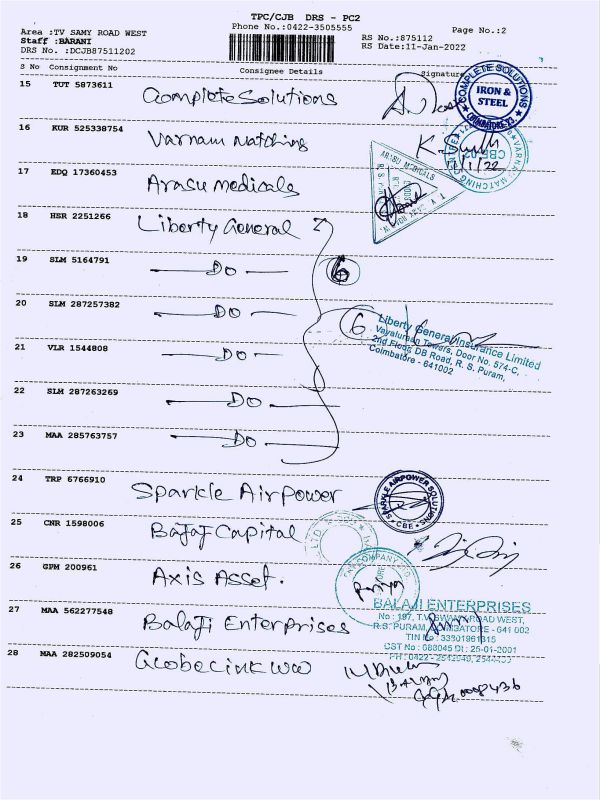 TPC/CJB DRS - PC2
Area :TV SAMY ROAD WEST Phone No.:0422-3505555 Page No.:2
Staff :BARANI RS No.:875112
DRS No. :DCJB87511202 RS Date:11-Jan-2022
S No Consignment No Consignee Details Signature
15 TUT 5873611 Complete Solutions
COMPLETE SOLUTIONS
IRON &
STEEL
16 KUR 525338754 Varnam Matching
17 EDQ 17360453 Arasu medicals
ARASU MEDICALS
18 HSR 2251266 Liberty General
19 SLM 5164791 DO 6
20 SLM 287257382 DO 6
Liberty General Insurance Limited
Vayaluraan Towers, Door No. 574-C,
2nd Floor, DB Road, R. S. Puram,
Coimbatore - 641002
21 VLR 1544808 DO
22 SLM 287263269 DO
23 MAA 285763757 DO
24 TRP 6766910 Sparkle AirPower
SPARKLE AIRPOWER SOLUTIONS
CBE
25 CNR 1598006 Bajaj Capital
26 GPM 200961 Axis Asset.
27 MAA 562277548 Balaji Enterprises
BALAJI ENTERPRISES
No : 197, T.V. SWAMY ROAD WEST,
R.S. PURAM, COIMBATORE - 641 002
TIN No : 33801861815
CST No : 688045 Dt : 25-01-2001
28 MAA 282509054 Globe Link WW